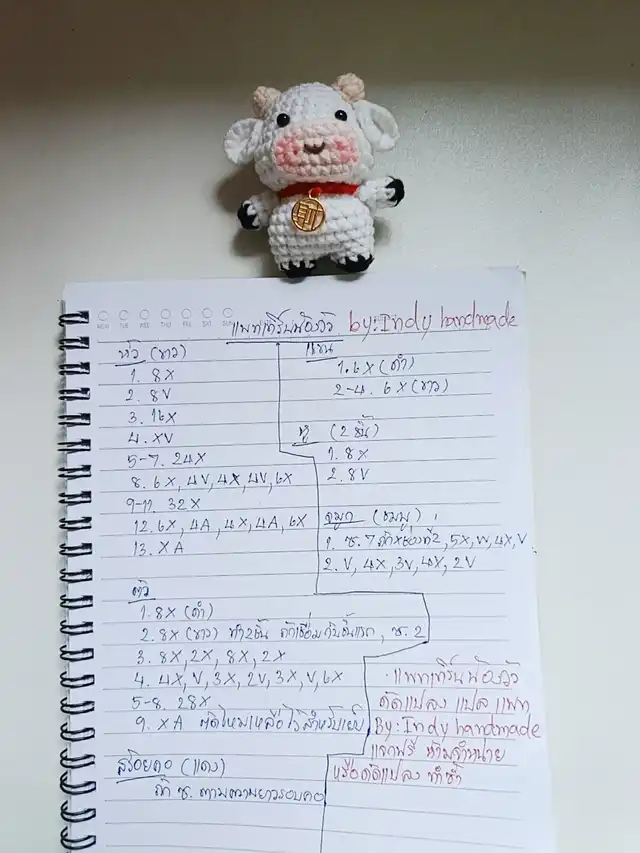 MON TUE WED THU FRI SAT SUN
แพทเทิร์นน้องวัว by: Indy handmade
หัว (ขาว)
1. 8X
2. 8V
3. 16X
4. XV
5-7. 24X
8. 6X, 4V, 4X, 4V, 6X
9-11. 32X
12. 6X, 4A, 4X, 4A, 6X
13. XA
แขน
1. 6X (ดำ)
2-4. 6X (ขาว)
หู (2 ชิ้น)
1. 8X
2. 8V
จมูก (ชมพู)
1. ซ. 7 เข้าช่องที่2, 5X, W, 4X, V
2. V, 4X, 3V, 4X, 2V
ตัว
1. 8X (ดำ)
2. 8X (ขาว) ทำ2ชิ้น ถักเชื่อมกับชิ้นแรก, ซ. 2
3. 8X, 2X, 8X, 2X
4. 4X, V, 3X, 2V, 3X, V, 6X
5-8. 28X
9. XA ตัดไหมเหลือไว้สำหรับเย็บ
สร้อยคอ (แดง)
ถัก ซ. ตามความยาวรอบคอ
แพทเทิร์นน้องวัว
ดัดแปลง แปล แพท
By: Indy handmade
แจกฟรี ห้ามจำหน่าย
หรือดัดแปลง ทำซ้ำ